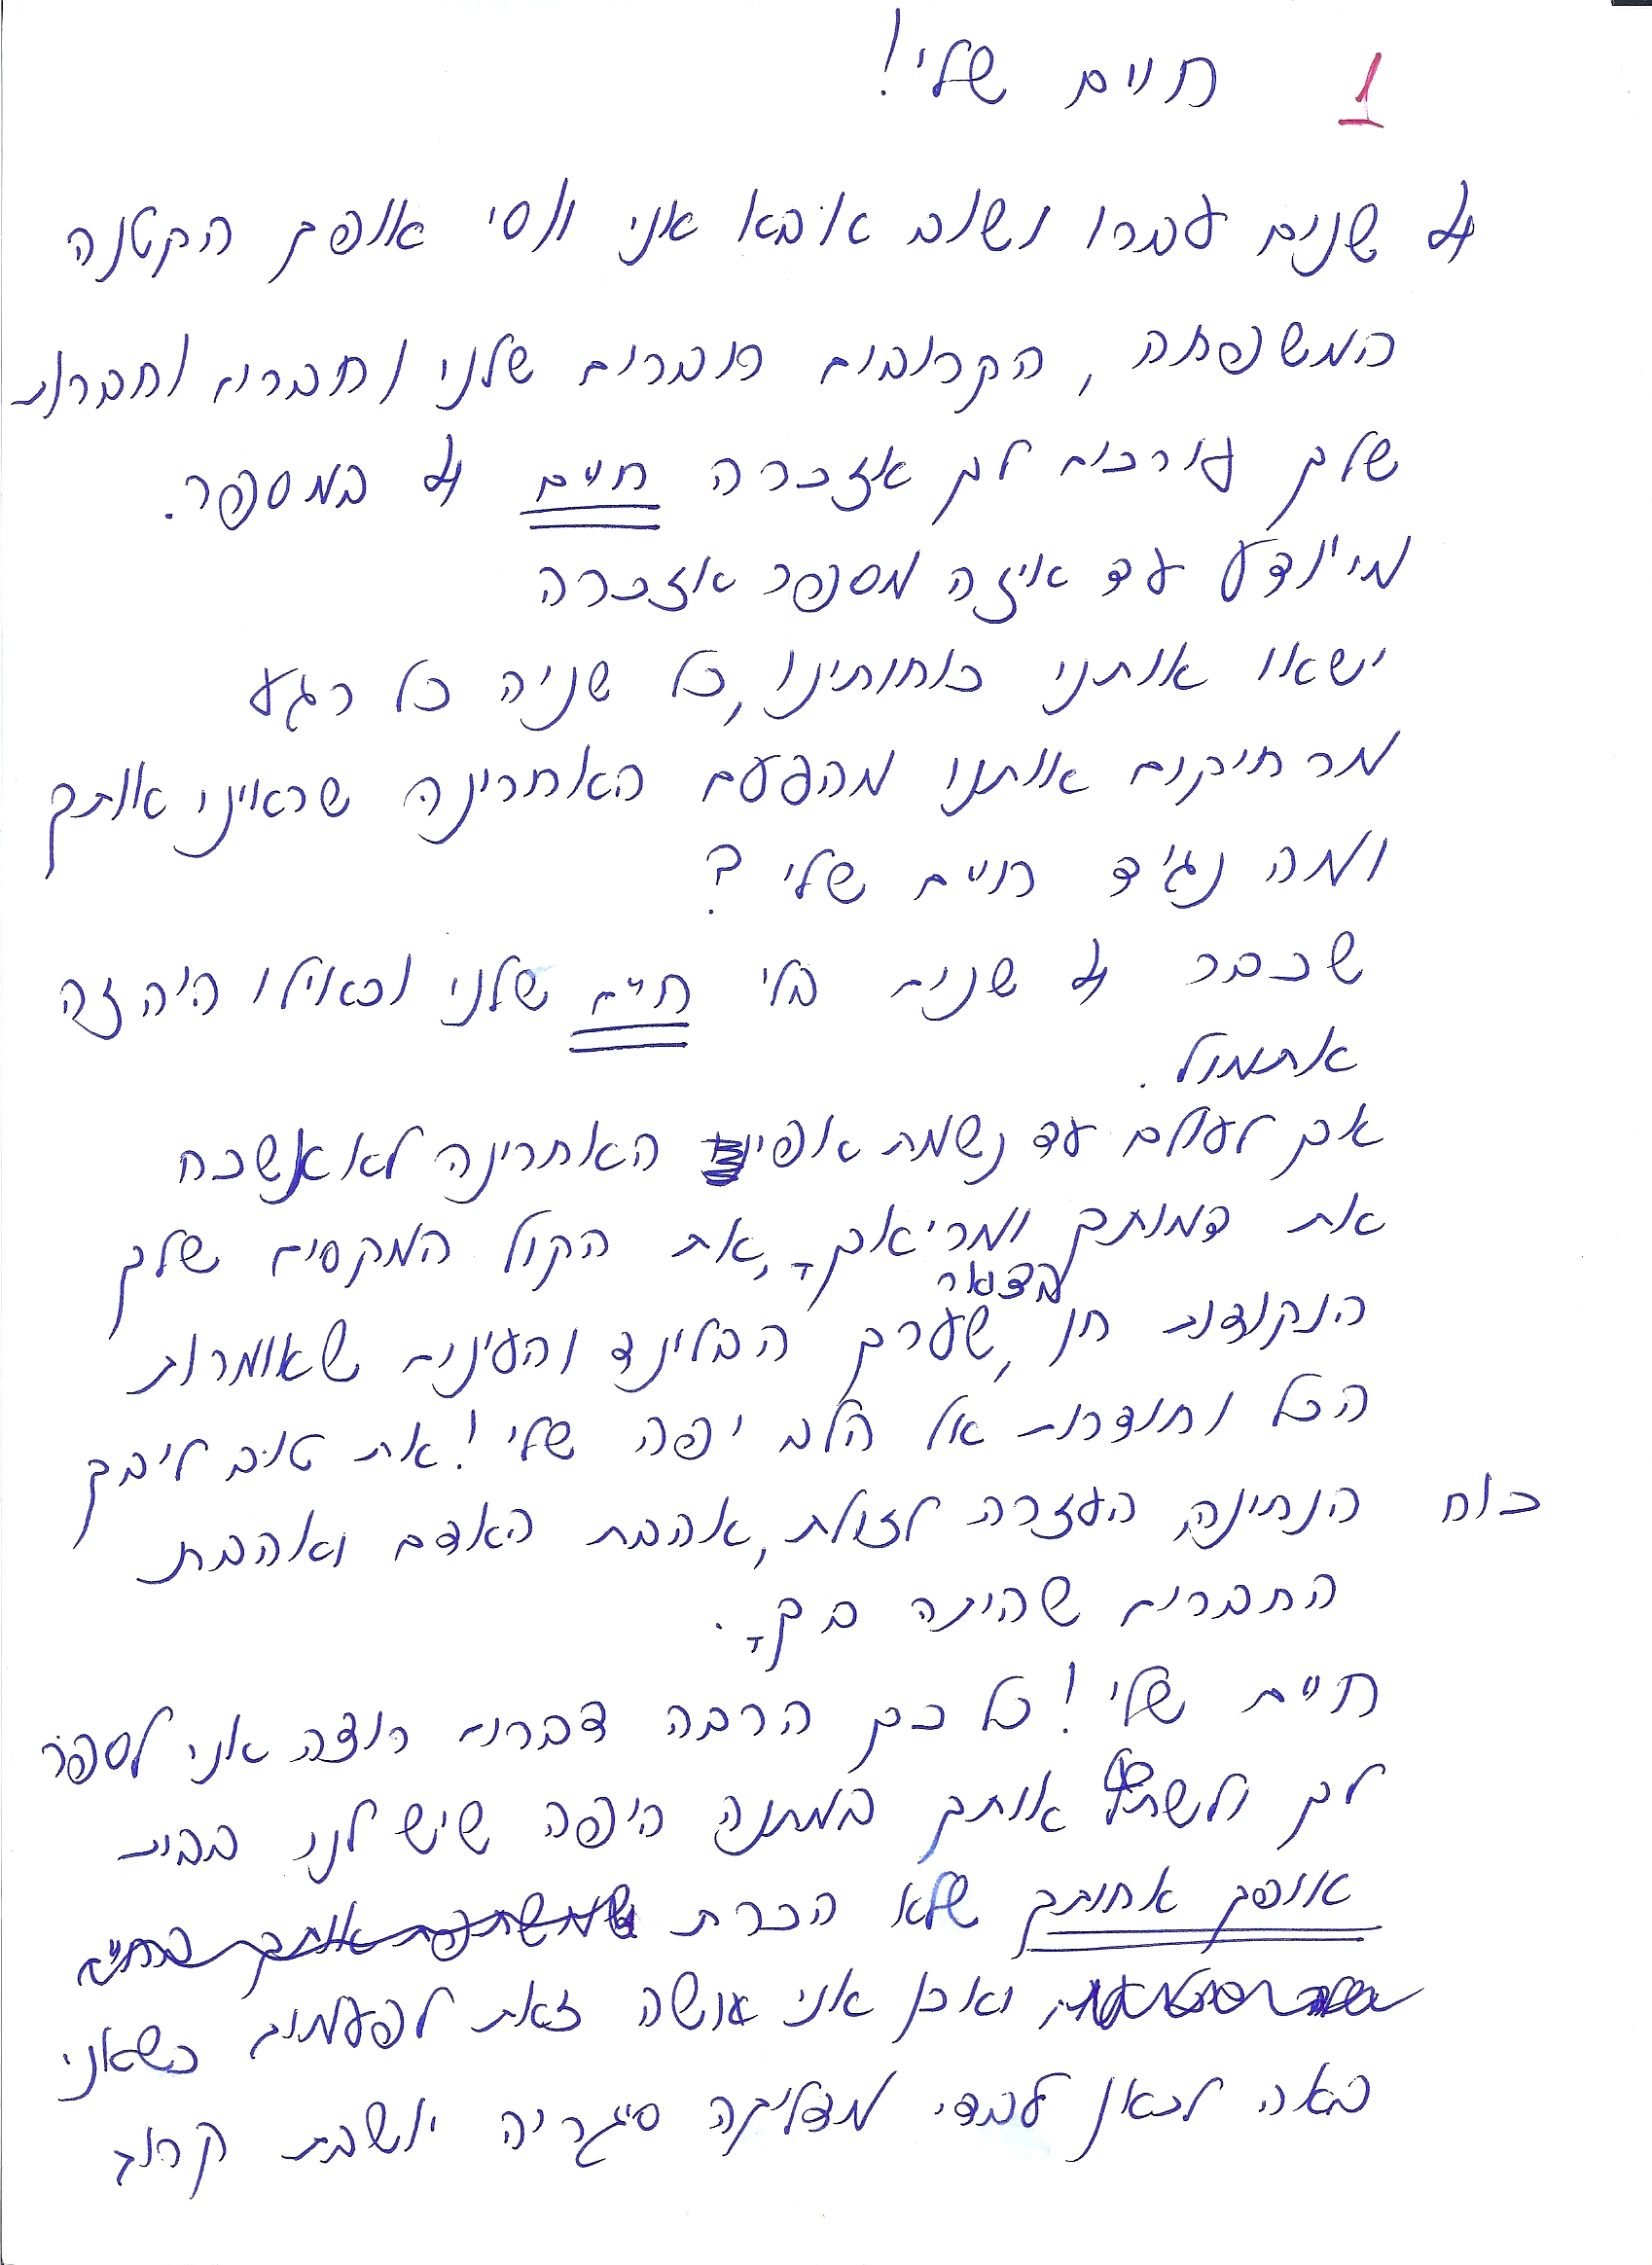 1 חיים שלי!
4 שנים עברו ושוב אבא אני ווסי אופק הקטנה
המשפחה, הקרובים חברים שלנו וחברים וחברות
שלך עורכים לך אזכרה חיים 4 במספר.
מי יודע עד איזה מספר אזכרה
ישאו אותנו כוחותינו, כל שניה כל רגע
מרחיקים אותנו מהפעם האחרונה שראינו אותך
ומה נגיד חיים שלי?
שכבר 4 שנים בלי חיים שלנו וכאילו היה זה
אתמול.
אך לעולם עד נשמת אפינו האחרונה לא אשכח
את דמותך ומריאך, את הקול המקסים שלך
הנקודות חן בצואר, שערך הבלונד והעינים שאומרות
הכל וחודרות אל הלב יפה שלי! את טוב ליבך
כוח הנתינה, העזרה לזולת, אהבת האדם ואהבת
החברים שהיתה בך.
חיים שלי! כל כך הרבה דברים רוצה אני לספר
לך ולשתף אותך במתנה היפה שיש לנו בבית
אופק אחותך שלא הכרת
ואכן אני עושה זאת לפעמים כשאני
באה לכאן לבדי מדליקה סיגריה יושבת קרוב